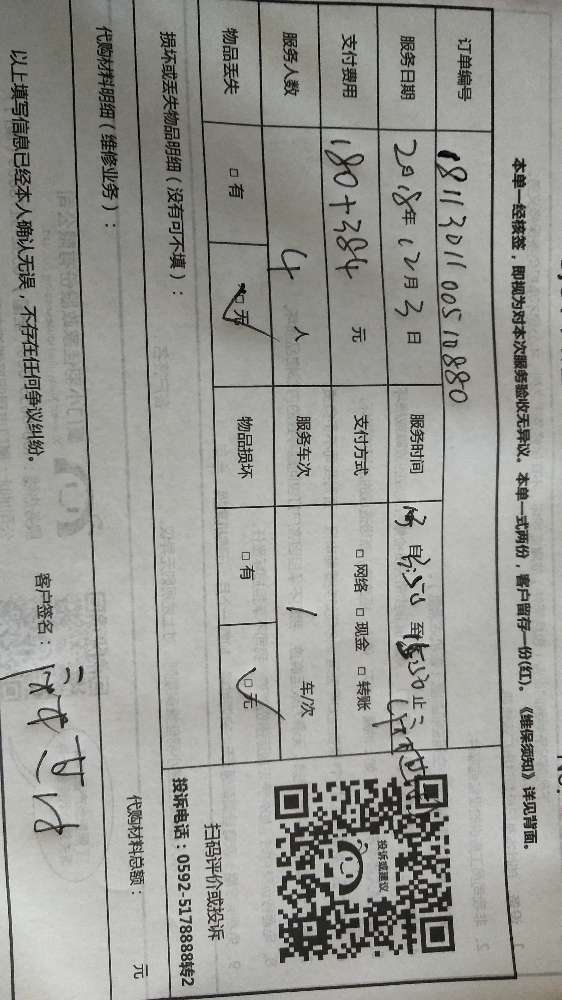 本单一经核签，即视为对本次服务验收无异议。本单一式两份，客户留存一份(红)。《维保须知》详见背面。
订单编号 1811301100510880
服务日期 2018年 12月 3 日 服务时间 自 至 15:30 止
支付费用 180+384 元 支付方式 □ 网络 □ 现金 □ 转账
服务人数 4 人 服务车次 1 车/次
物品丢失 □ 有 □ 无 物品损坏 □ 有 □ 无
投诉或建议
扫码评价或投诉
投诉电话：0592-5178888转2
损坏或丢失物品明细（没有可不填）：
代购材料明细（维修业务）： 代购材料总额： 元
以上填写信息已经本人确认无误，不存在任何争议纠纷。 客户签名：